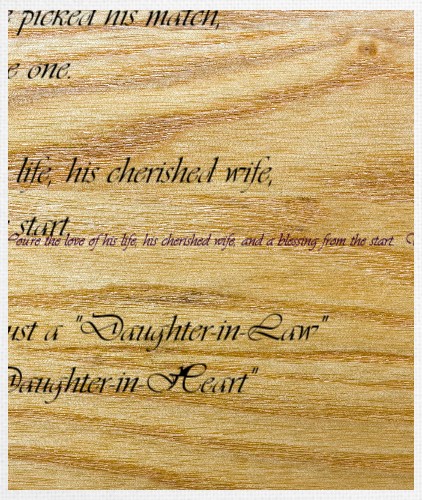 picked his match,
one.
life, his cherished wife,
start
You're the love of his life, his cherished wife, and a blessing from the start
ust a "Daughter-in-Law"
Daughter-in-Heart"